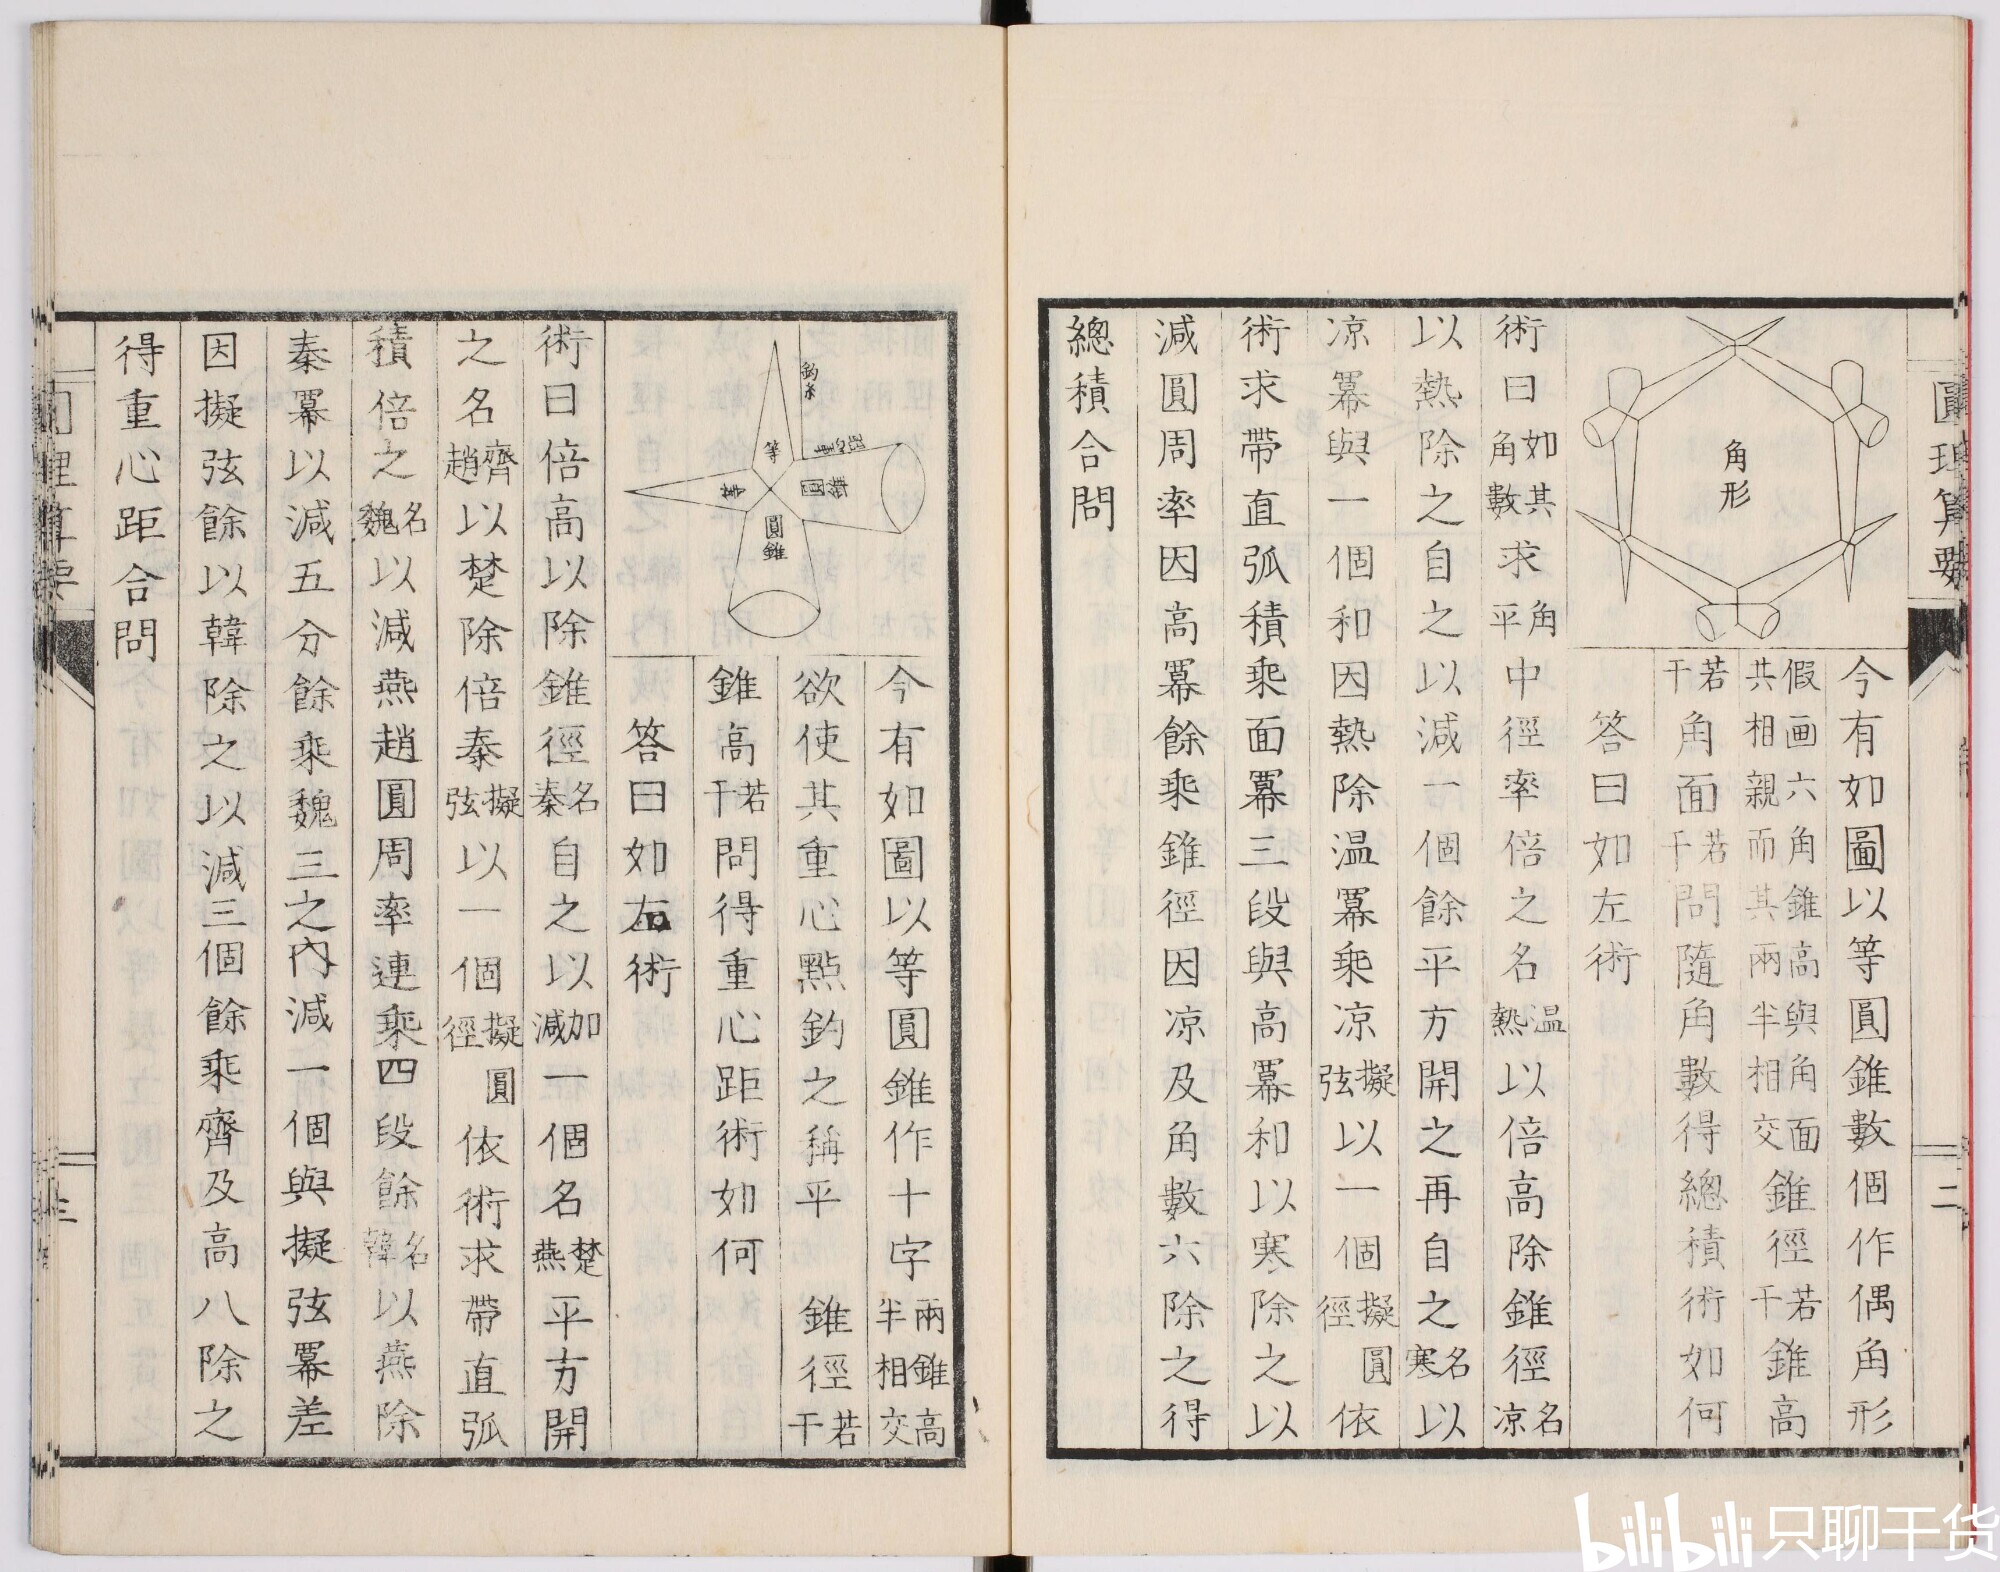 圓理算要
二
角形
今有如圖以等圓錐數個作偶角形
假画六角錐高與角面共相親而其兩半相交錐徑若干錐高
若干角面若干問隨角數得總積術如何
答曰如左術
術曰如其角數求角平中徑率倍之名温熱以倍高除錐徑名凉
以熱除之自之以減一個餘平方開之再自之名寒以
凉冪與一個和因熱除温冪乘凉擬弦以一個擬圓徑依
術求帶直弧積乘面冪三段與高冪和以寒除之以
減圓周率因高冪餘乘錐徑因凉及角數六除之得
總積合問
釣糸
重心距
等
等
圓錐
圓錐
今有如圖以等圓錐作十字兩錐高半相交
欲使其重心點釣之稱平 錐徑若干
錐高若干問得重心距術如何
答曰如左術
術曰倍高以除錐徑名秦自之以加減一個名楚燕平方開
之名齊趙以楚除倍秦擬弦以一個擬圓徑依術求帶直弧
積倍之名魏以減燕趙圓周率連乘四段餘名韓以燕除
秦冪以減五分餘乘魏三之內減一個與擬弦冪差
因擬弦餘以韓除之以減三個餘乘齊及高八除之
得重心距合問
bilibili 只聊干货